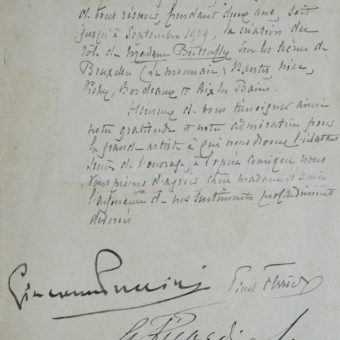 de vous réserver pendant deux ans, soit
jusqu'à Septembre 1909, la création du
rôle de Madame Butterfly sur les scènes de
Bruxelles (La monnaie), Nantes, Nice,
Vichy, Bordeaux et Aix les Bains.
Heureux de vous témoigner ainsi
notre gratitude et notre admiration pour
la grande artiste à qui nous devons l'éclatant
succès de l'ouvrage à l'opéra comique nous
vous prions d'agréer chère madame et amie
l'assurance de nos sentiments profondément
dévoués
Giacomo Puccini Paul Ferrier
G. Ricordi